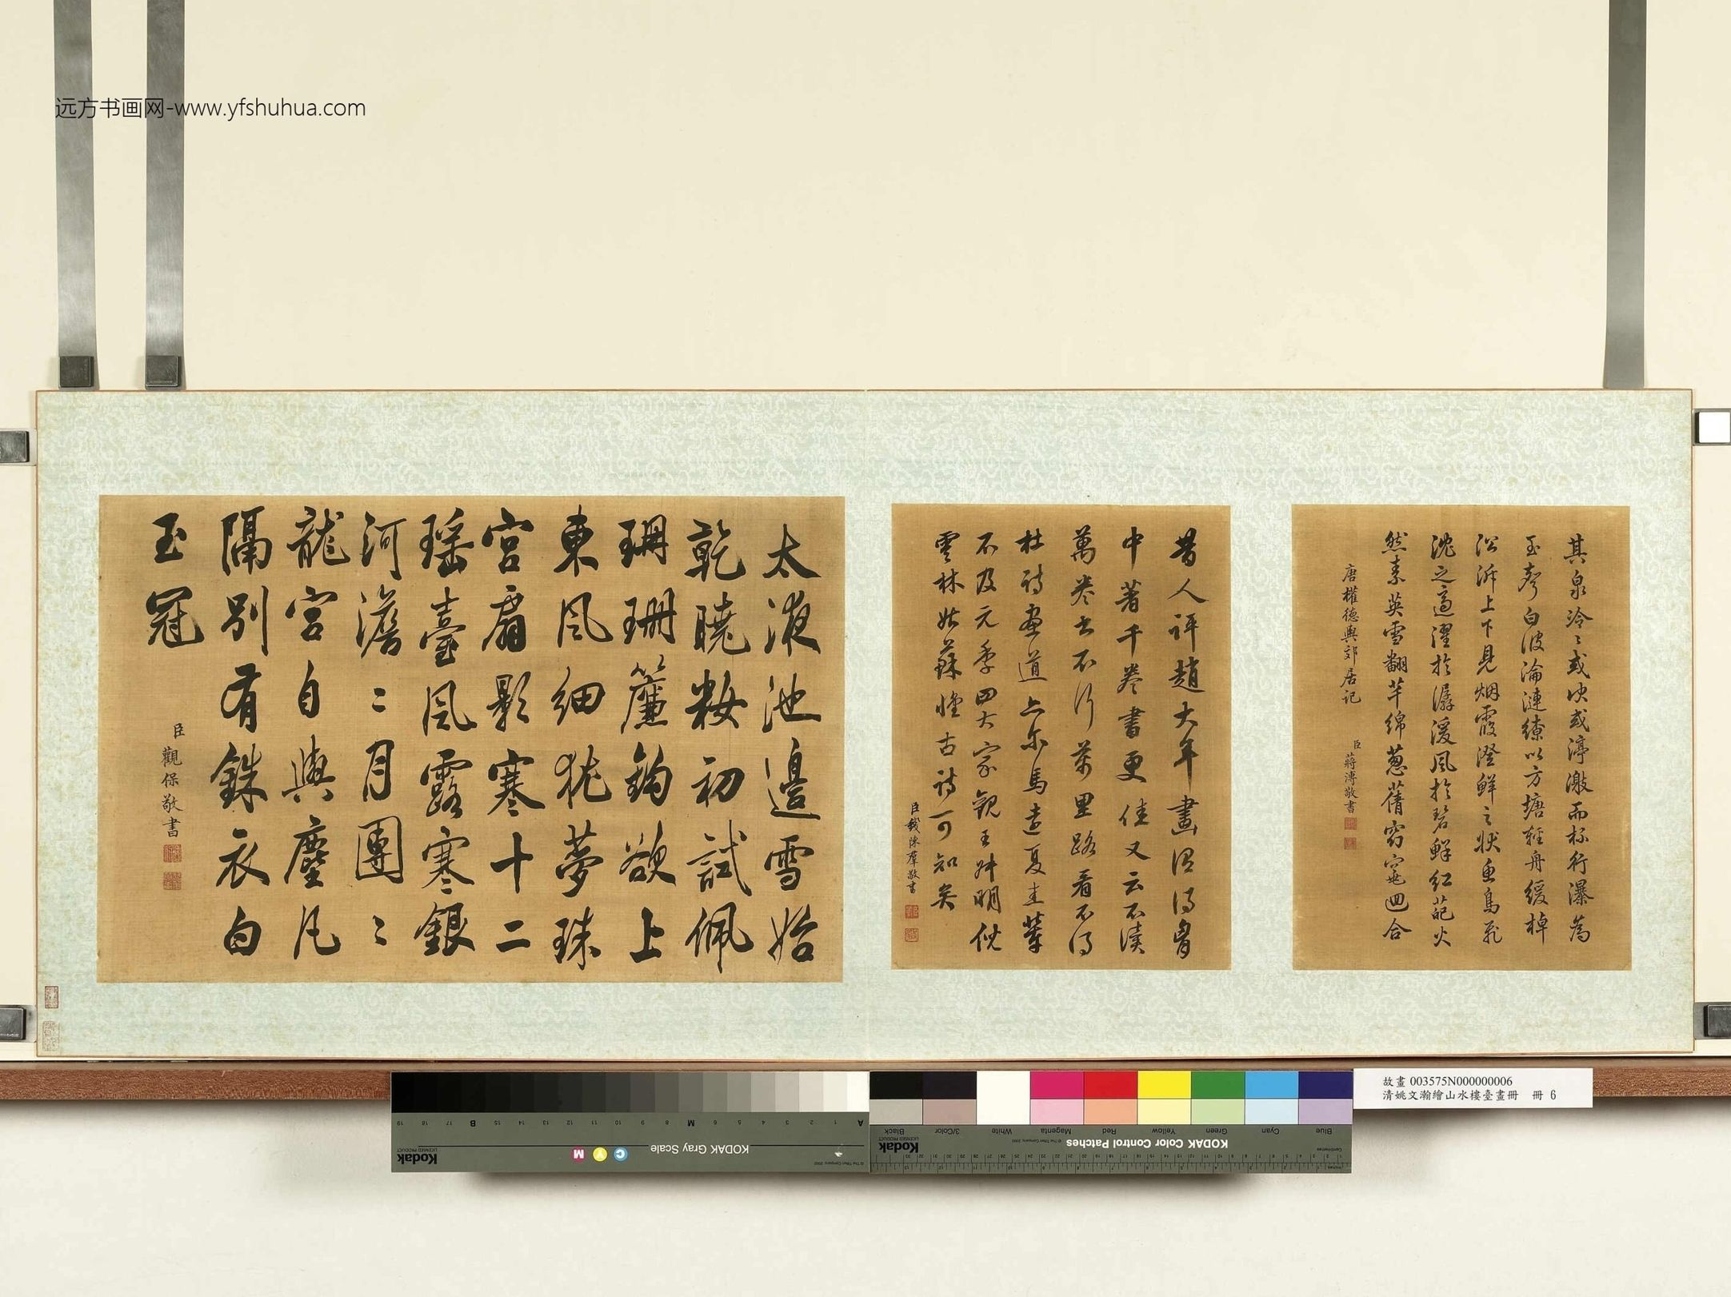 远方书画网-www.yfshuhua.com
其泉泠〻或决或渟激而杯行瀑為
玉聲白波淪漣繚以方塘輕舟緩棹
沿泝上下見烟霞澄鮮之狀魚鳥飛
沈之適濯於潺湲風於碧鮮紅葩火
然素英雪翻芊綿蔥蒨窈窕迴合
唐權德輿郊居記
臣蔣溥敬書
昔人評趙大年畫謂得胷
中著千卷書更佳又云不讀
萬卷書不行萬里路看不得
杜詩畫道亦尔馬遠夏圭輩
不及元季四大家觀王叔明倪
雲林姑蘇懷古詩可知矣
臣錢陳羣敬書
太液池邊雪始
乾曉妝初試佩
珊珊簾鉤欲上
東風細猶夢珠
宮扇影寒十二
瑶臺風露寒銀
河澹〻月團〻
龍宮自與塵凡
隔別有銖衣白
玉冠
臣觀保敬書
故畫 003575N000000006
清姚文瀚繪山水樓臺畫冊 冊 6
KODAK Gray Scale
Kodak
LICENSED PRODUCT
A 1 2 3 4 5 6 M 8 9 10 11 12 13 14 15 B 17 18 19
C Y M
KODAK Color Control Patches
Kodak
LICENSED PRODUCT
Blue Cyan Green Yellow Red Magenta White 3/Color Black